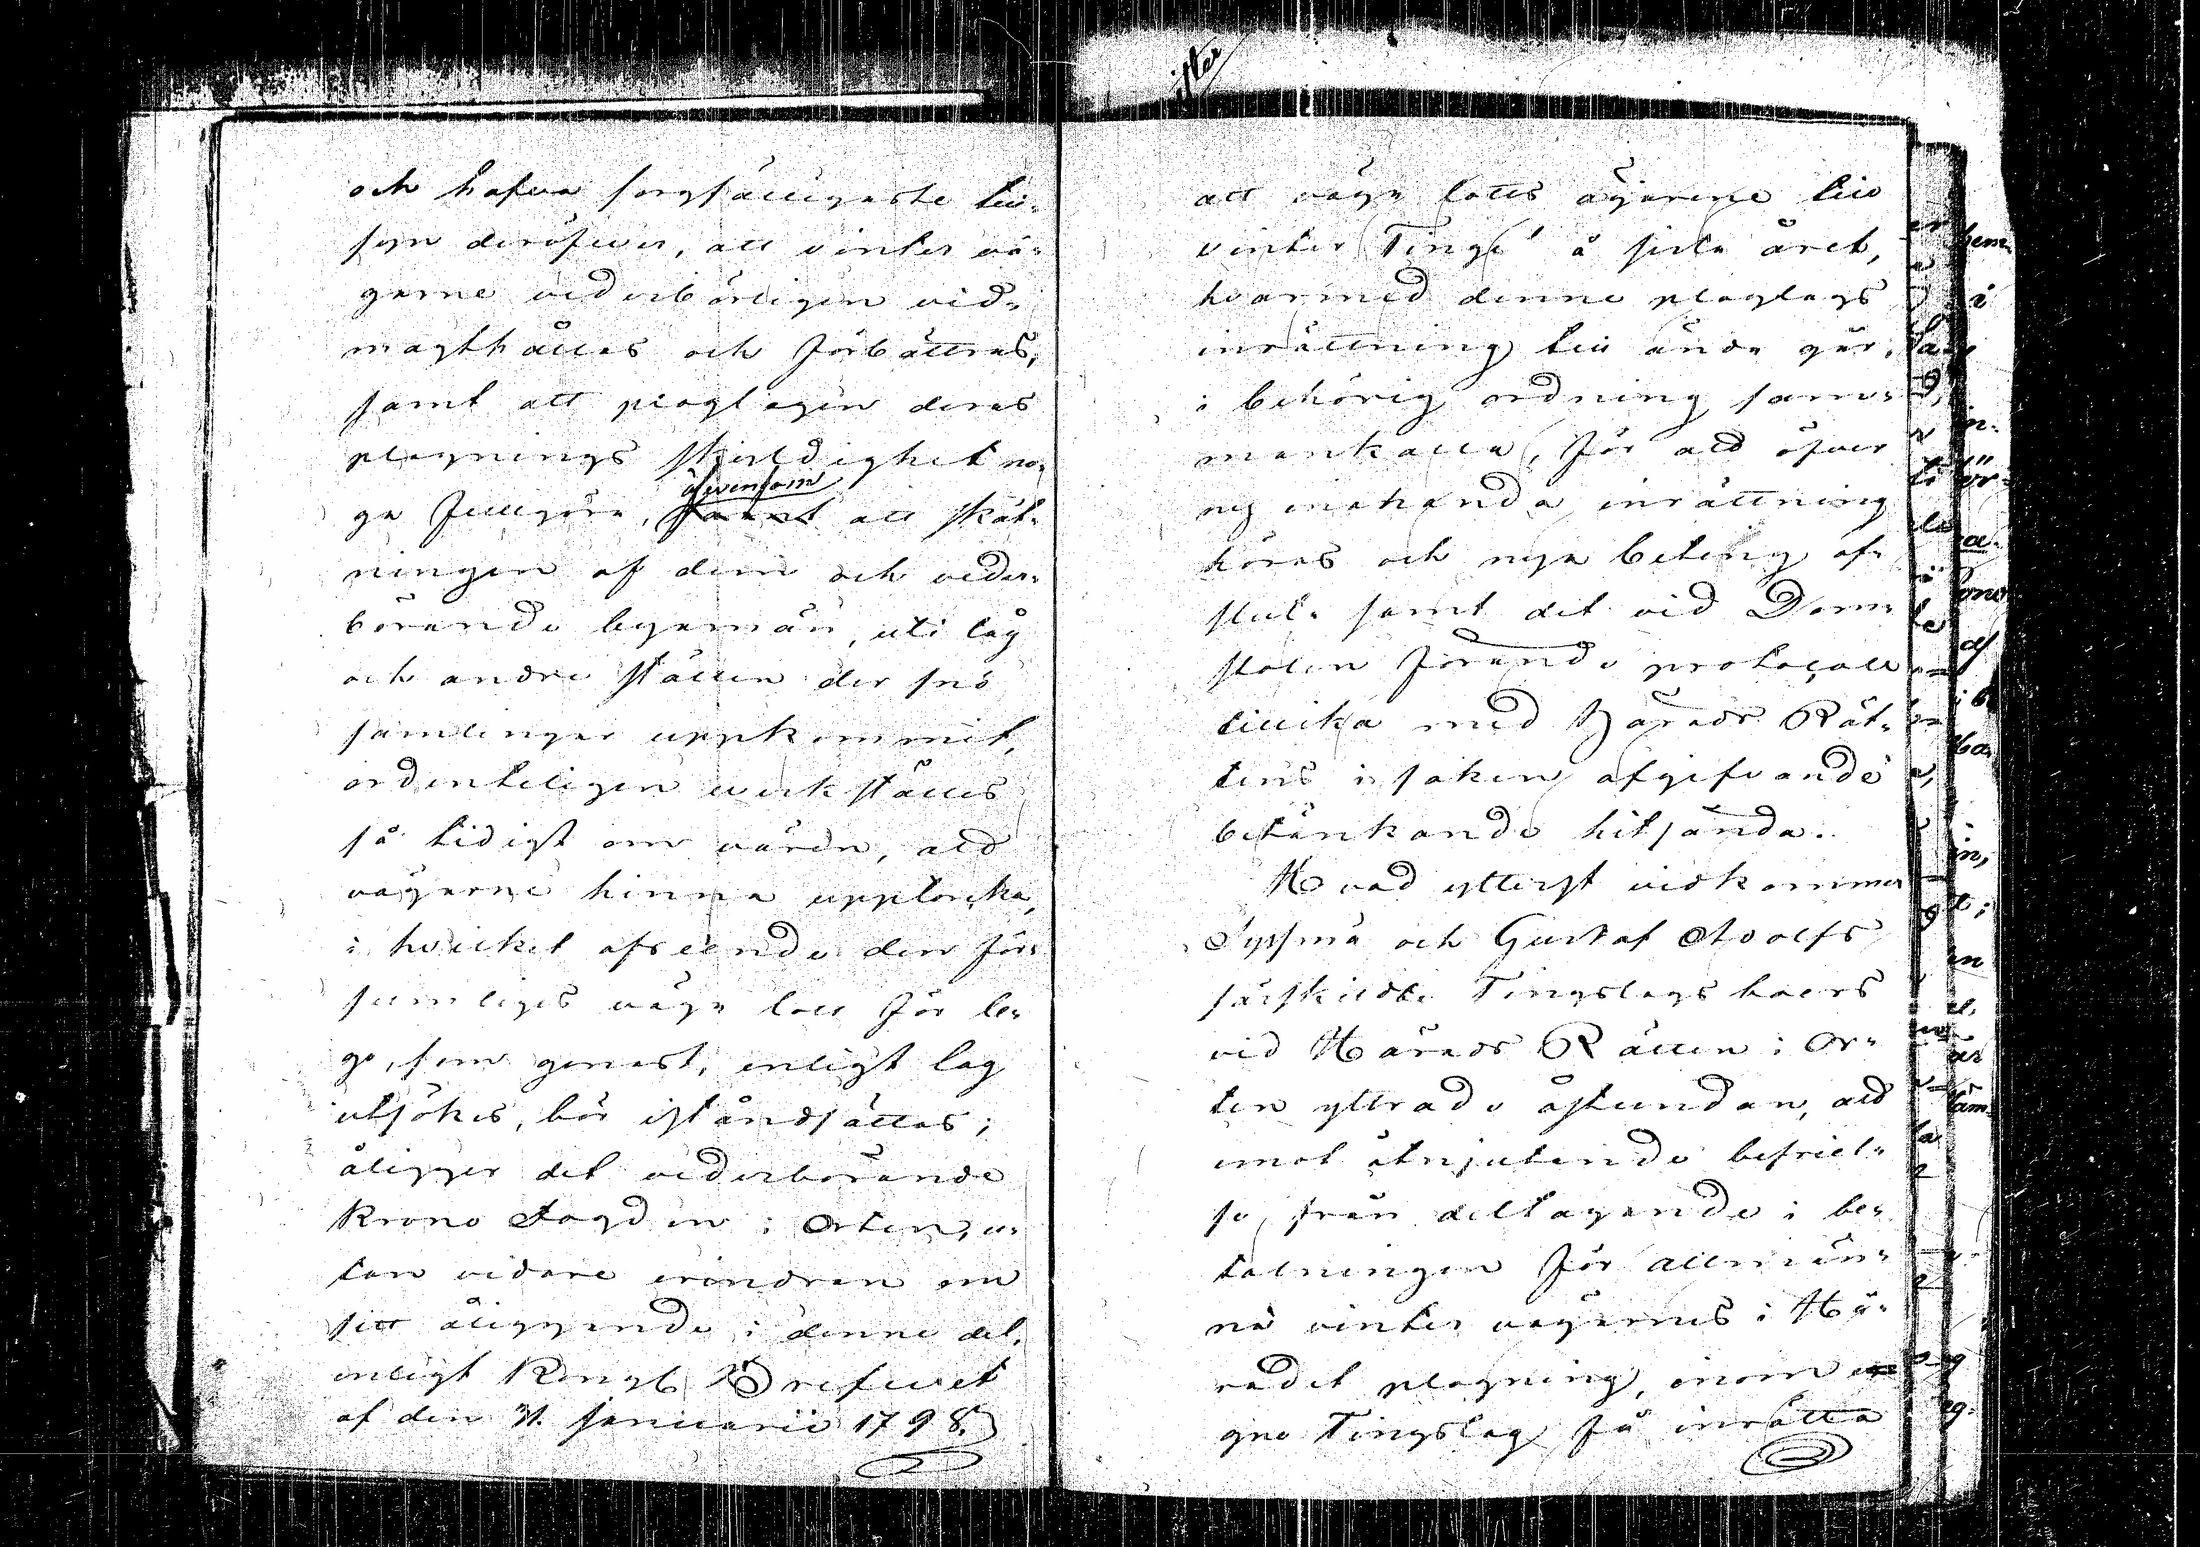 och hafva sorgfälligaste till-
syn deröfwer, att vinter vä-
garne vederbörligen vid-
magthålles och förbättras,
samt att ploglagen deras
plognings skyldighet no-
ga fullgöra, äfwensom samt att skåt-
ningen af dem och veder-
börande byamän, uti låg
och andre ställen der snö
samlingar uppkommit,
ordenteligen werkställes
så tidigt om våren, att
vägarne hinna upptorcka,
i hvilket afseende den för-
sumliges väga lott för le-
go, som genast, enligt lag
utsökes, bör iståndsättas;
åligger det vederbörande
Krono Fogden i Orten, u-
tan vidare erindran om
sitt åliggande i denne del,
enligt Kongl Brefwet
af den 31. Januarii 1798.
att väga lotts ägarene till
vinter Tinget å sista året,
hvarmed denne ploglags
inrättning till ända går,
i behörig ordning sam-
mankalla, för att öfver
ny enahanda inrättning
höras och nya beting af-
sluta samt det vid Dom-
stolen förande protocoll
tillika med Härads Rät-
tens i saken afgifvande
betänkande hitsända.
Hvad ytterst vidkommer
Sysmä och Gustaf Adolfs
särskildte Tingslags boers
vid Härads Rätten i Or-
ten yttrade åstundan, att
emot åtnjutande befriel-
se från deltagande i be-
talningen för allmän-
na vinter vägarnes i Hä-
radet plogning, inom e-
gne Tingslag få inrätta